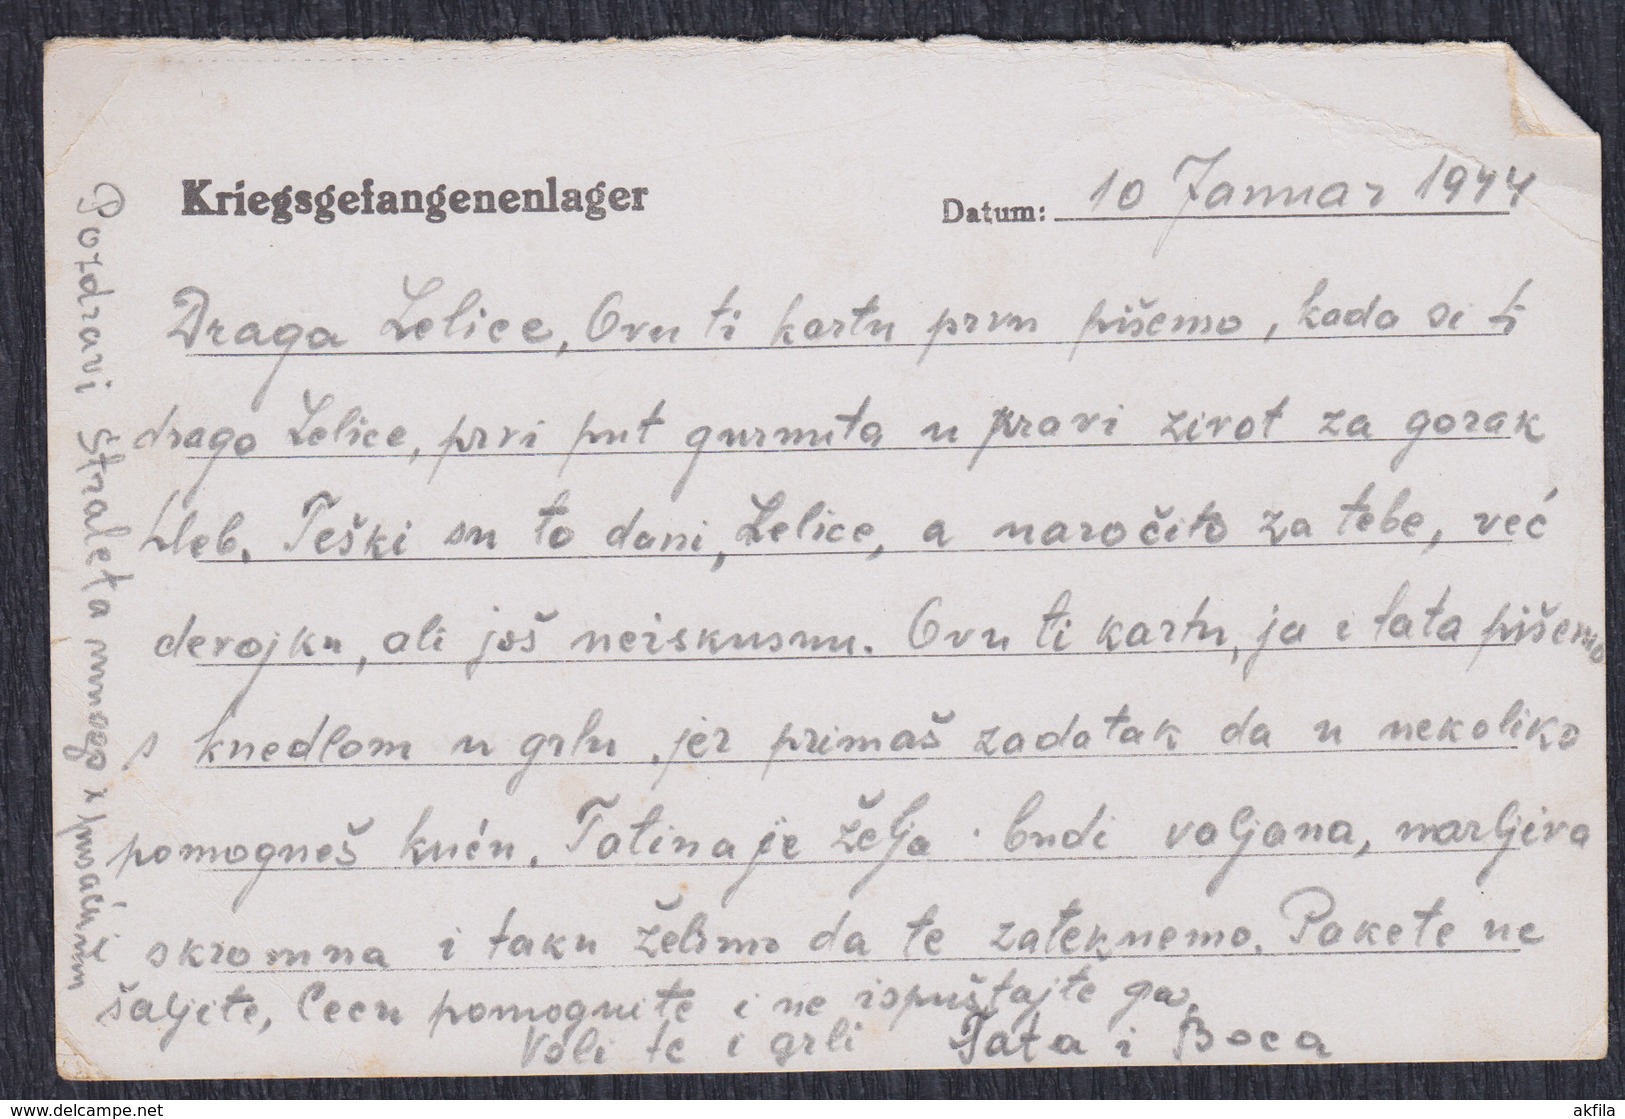 Kriegsgefangenenlager
Datum: 10 Januar 1944
Draga Lelice, Ovu ti kartu prvu pišemo, kada si ti
drago Lelice, prvi put gurnuta u pravi život za gorak
hleb. Teški su to dani, Lelice, a naročito za tebe, već
devojku, ali još neiskusnu. Ovu ti kartu, ja i tata pišemo
s knedlom u grlu, jer primaš zadatak da u nekoliko
pomogneš kuću. Tatina je želja · budi valjana, marljiva
skromna i taku želimo da te zateknemo. Pakete ne
šaljite, Cecu pomognite i ne ispuštajte ga.
Voli te i grli Tata i Boca
Pozdravi Straleta mnogo i
www.delcampe.net
akfila